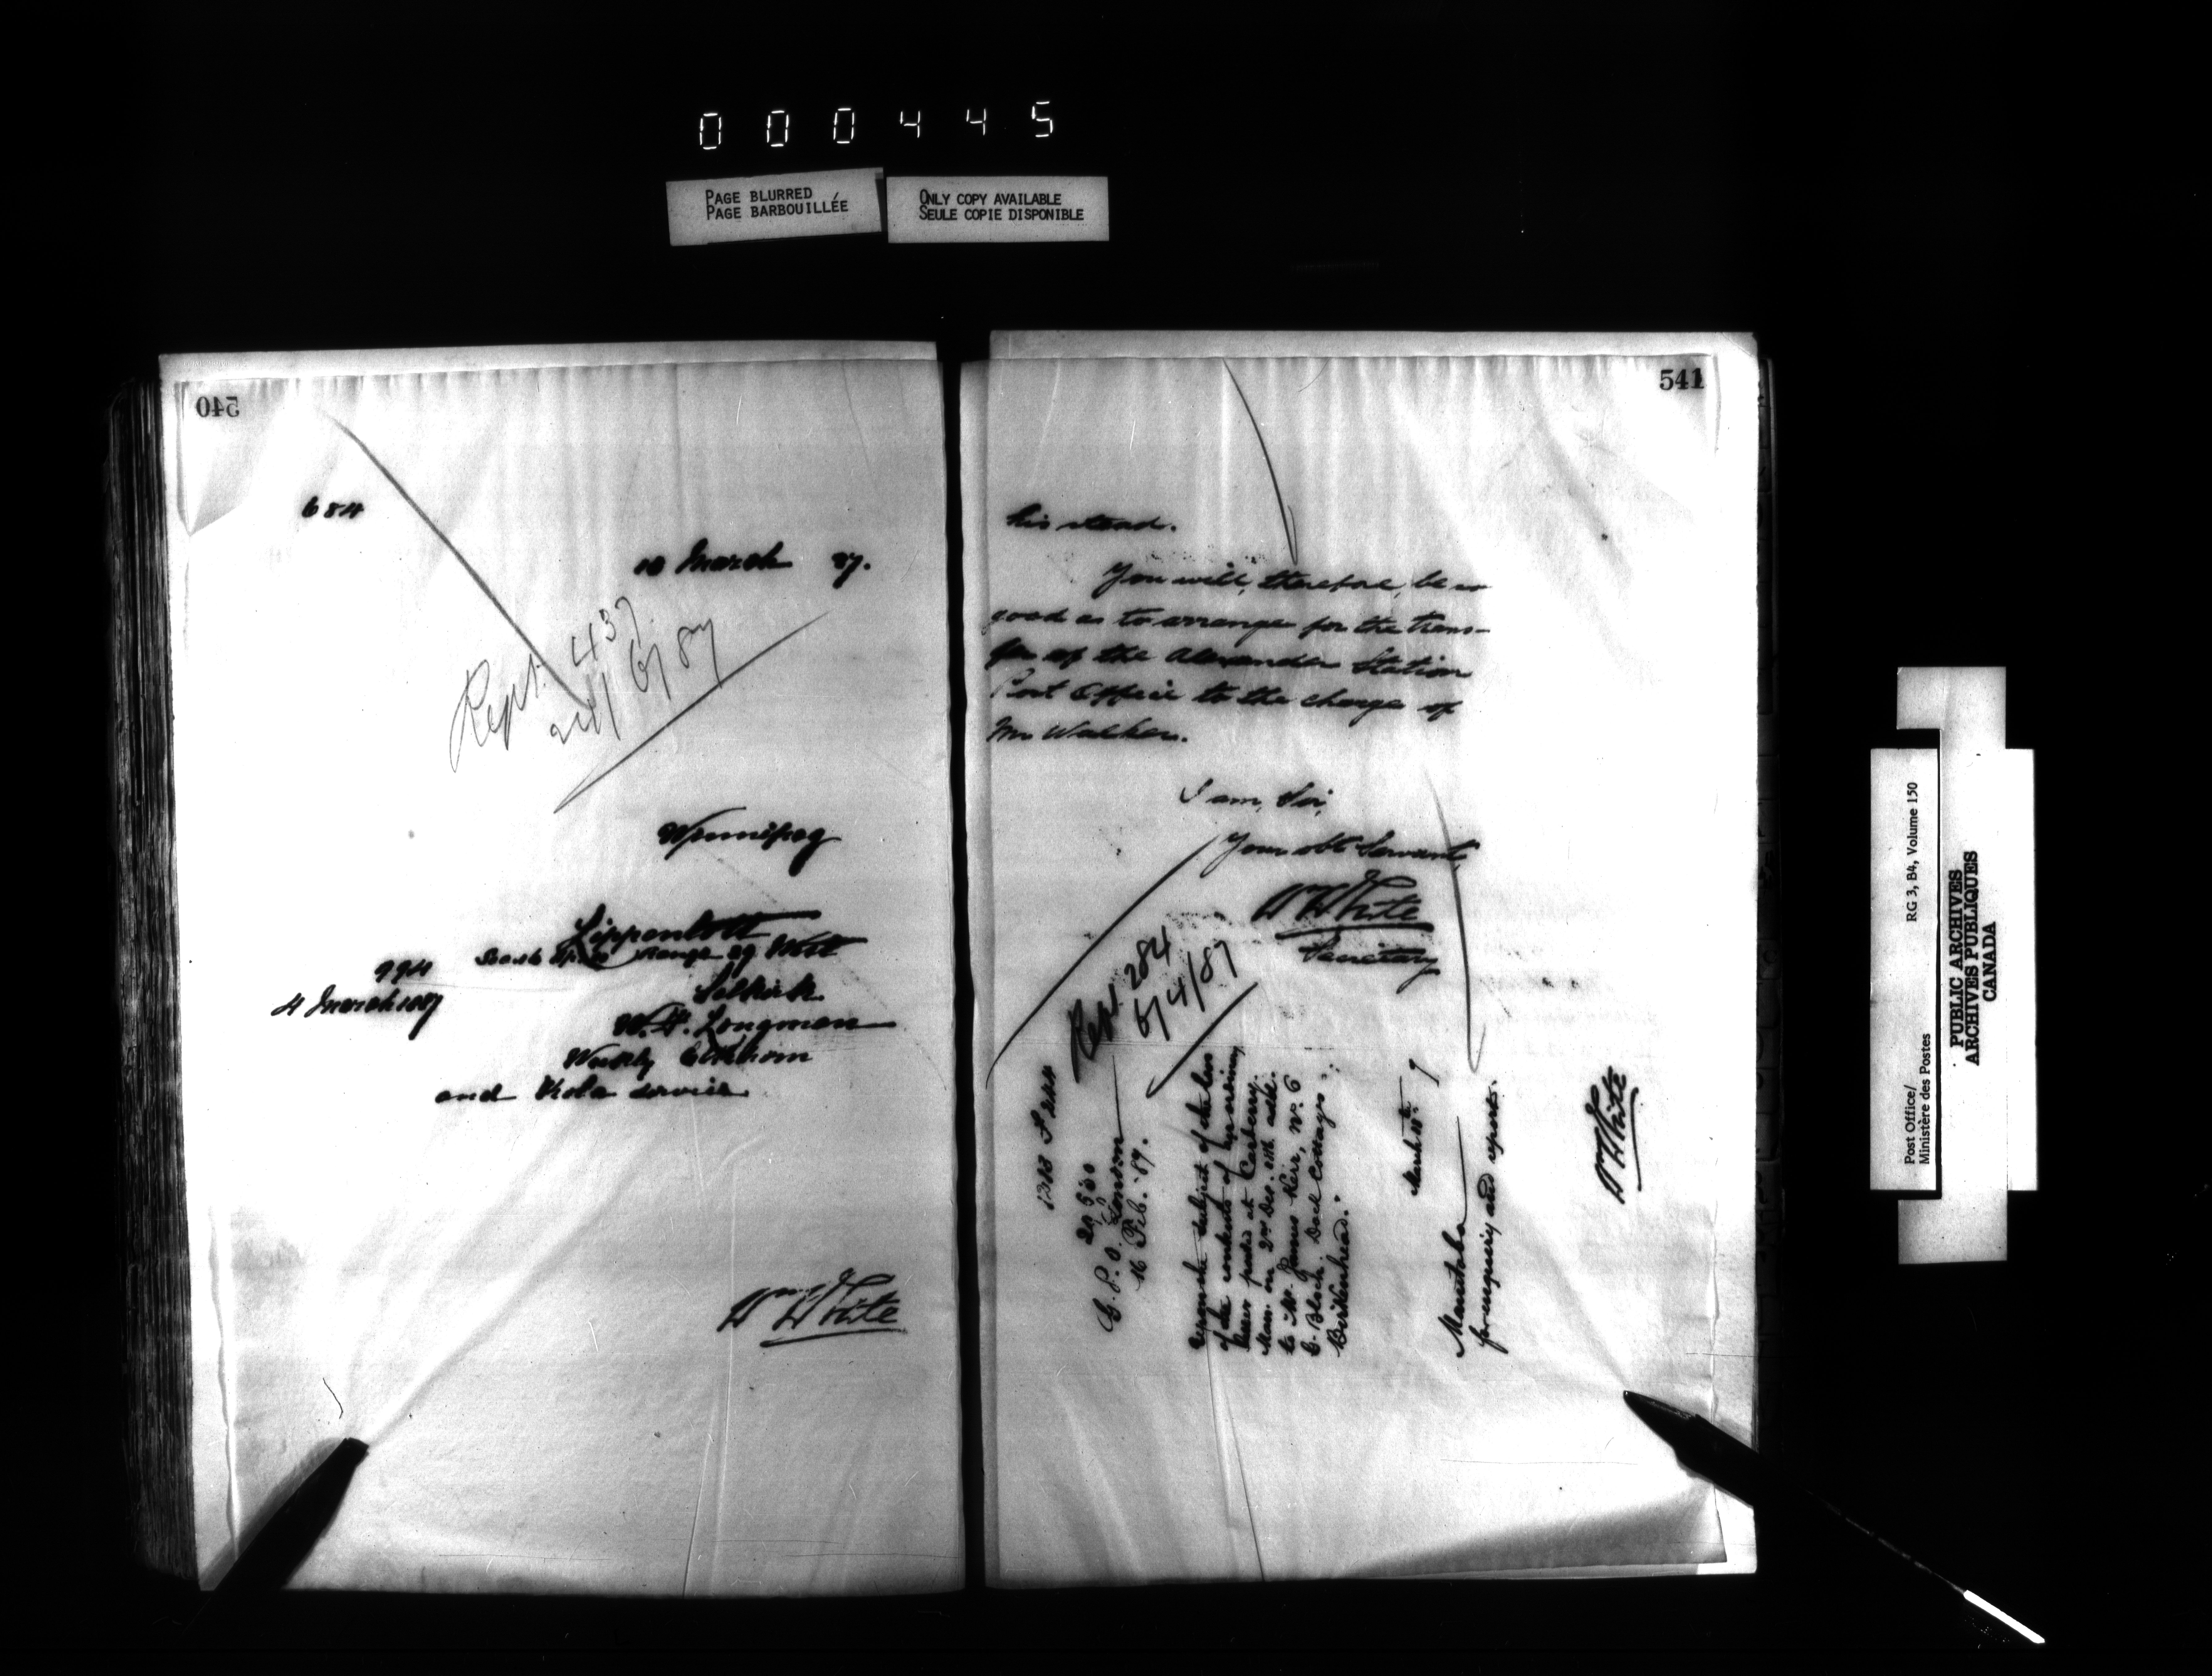 000445
PAGE BLURRED
PAGE BARBOUILLÉE
ONLY COPY AVAILABLE
SEULE COPIE DISPONIBLE
540
684
10 March 87.
Rept. 437
24/6/87
Winnipeg
Lippentott
Range 29 West
Selkirk
994
4 March 1887
W. H. Longman
Weekly Elkhorn
and Kola service
Wm White
541
his stead.
You will, therefore, be so
good as to arrange for the trans-
fer of the Alexander Station
Post Office to the charge of
Mr Walker.
I am, Sir,
Your obt Servant,
Wm White
Secretary
Rept 284
6/4/87
G. P. O. London
16 Feb. '87.
subject of the loss
of the contents of
letter posted at Carberry
Man. on 2nd Dec.
to Mr. James Kerr, No. 6
C. Block, Dock Cottages,
Birkenhead.
March 10th 7
Manitoba
for enquiry and report.
Wm White
Post Office/
Ministère des Postes
RG 3, B4, Volume 150
PUBLIC ARCHIVES
ARCHIVES PUBLIQUES
CANADA